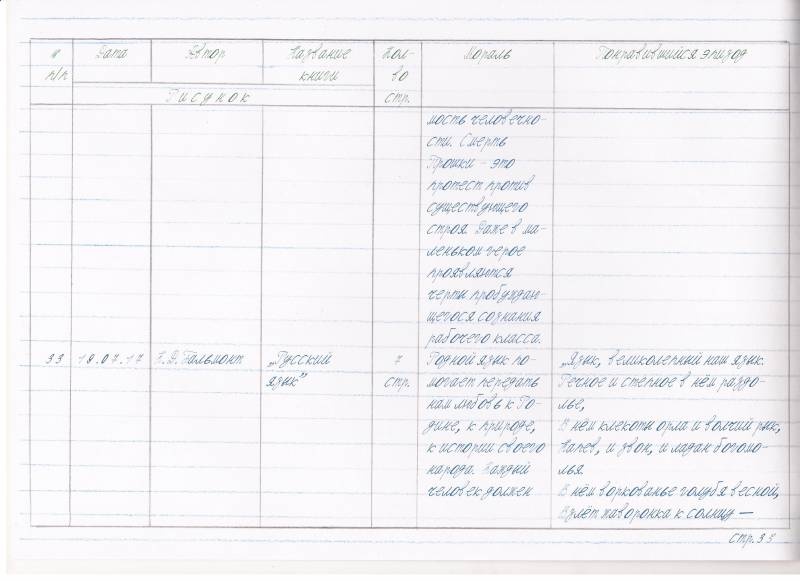 № п/п
Дата
Автор
Название
книги
Кол-
во
стр.
Мораль
Понравившийся эпизод
Рисунок
мость человечно-
сти. Смерть
Прошки – это
протест против
существующего
строя. Даже в ма-
леньком герое
проявляются
черты пробуждаю-
щегося сознания
рабочего класса.
33
19.07.17
К.Д. Бальмонт
„Русский
язык”
7
стр.
Родной язык по-
могает передать
нам любовь к Ро-
дине, к природе,
к истории своего
народа. Каждый
человек должен
„Язык, великолепный наш язык.
Речное и степное в нём раздо-
лье,
В нём клекоты орла и волчий рык,
Напев, и звон, и ладан богомо-
лья.
В нём воркованье голубя весной,
Взлёт жаворонка к солнцу —
стр. 33